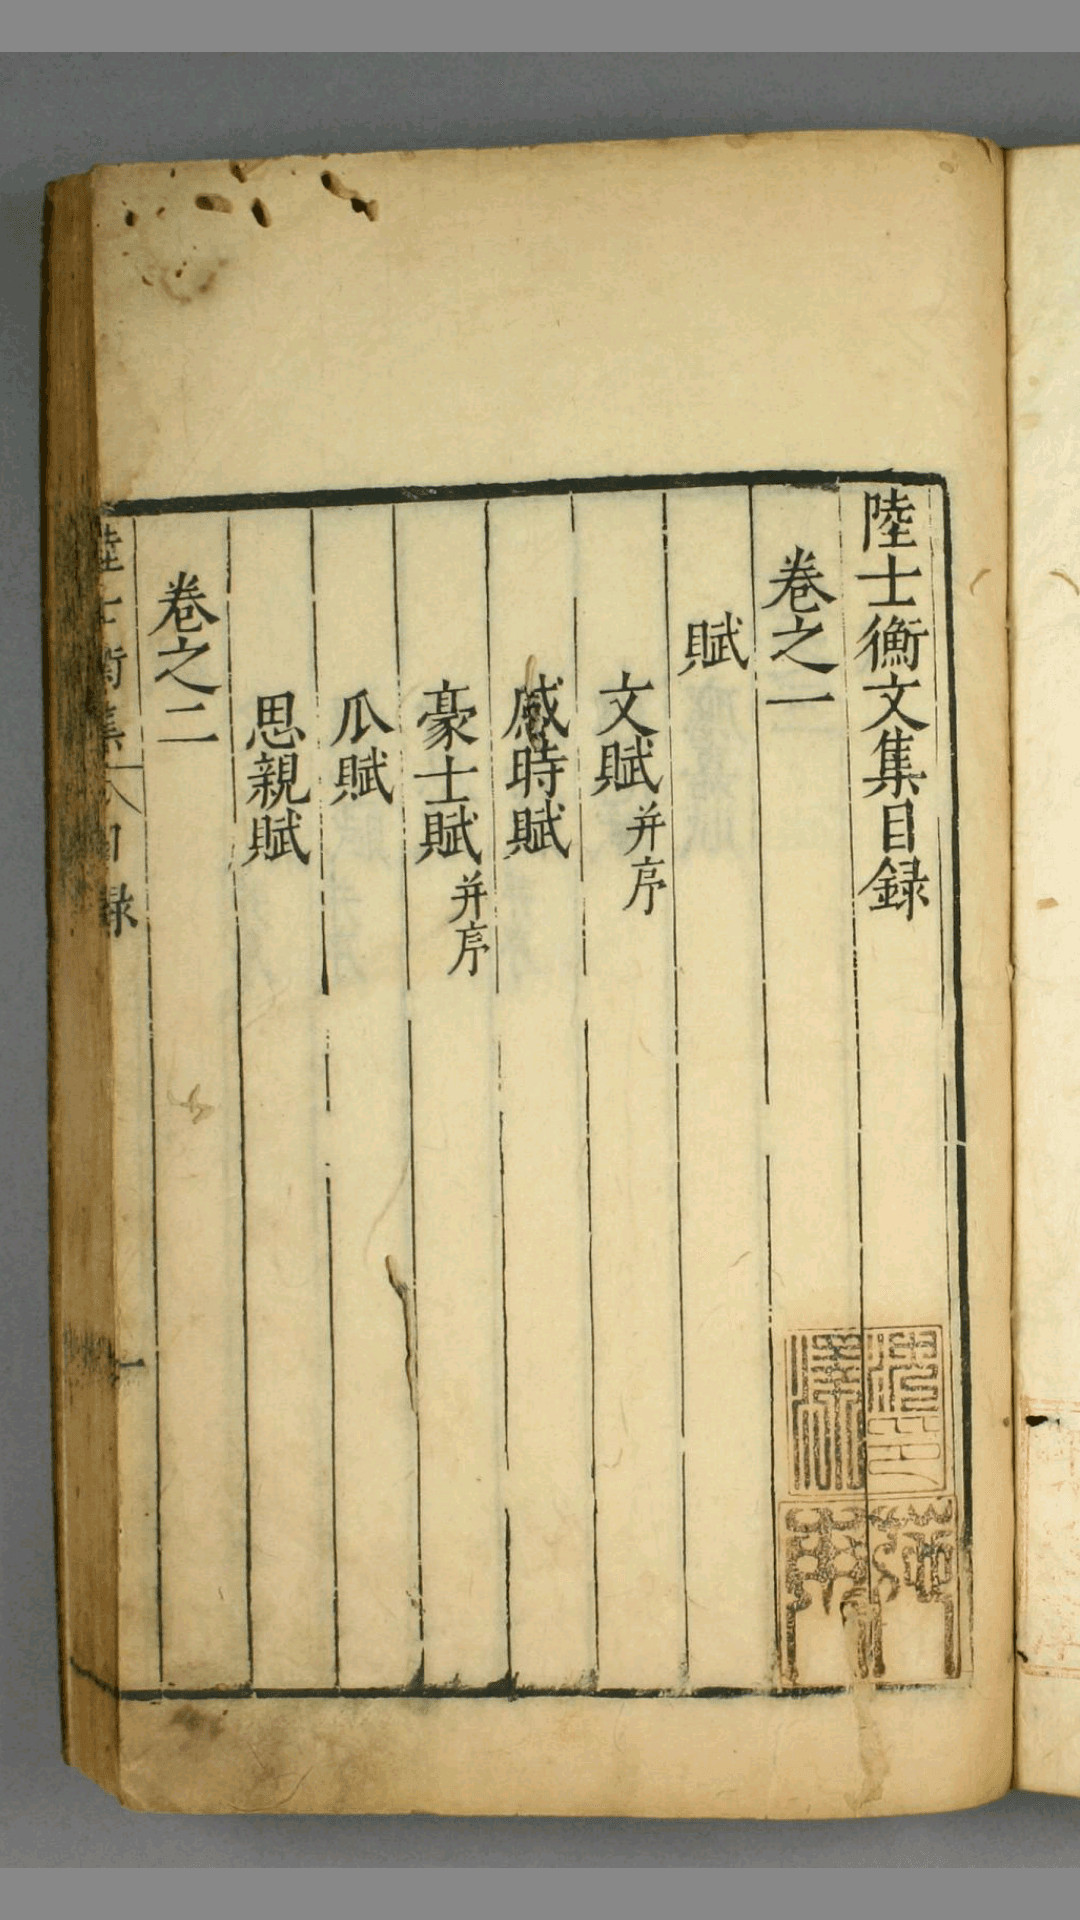 陸士衡文集目録
卷之一
賦
文賦并序
感時賦
豪士賦并序
瓜賦
思親賦
卷之二
陸士衡集 目録 一